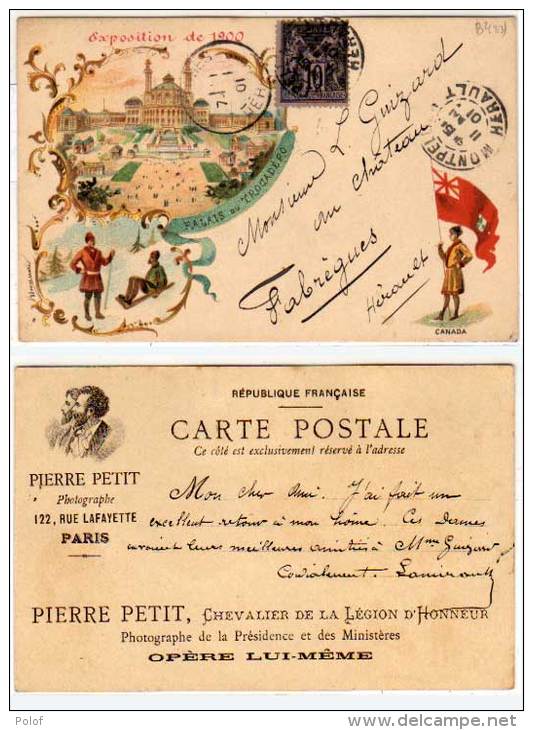 Exposition de 1900
PALAIS du TROCADÉRO
Monsieur L. Guizard
au château
Fabrègues
Hérault
10
MONTPELLIER
HERAULT
CANADA
RÉPUBLIQUE FRANÇAISE
CARTE POSTALE
Ce côté est exclusivement réservé à l'adresse
PIERRE PETIT
Photographe
122, RUE LAFAYETTE
PARIS
Mon cher Ami. J'ai fait un
excellent retour à mon home. Ces Dames
envoient leurs meilleures amitiés à Mme Guizard
Cordialement.
PIERRE PETIT, CHEVALIER DE LA LÉGION D'HONNEUR
Photographe de la Présidence et des Ministères
OPÈRE LUI-MÊME
Polof
delcampe.net